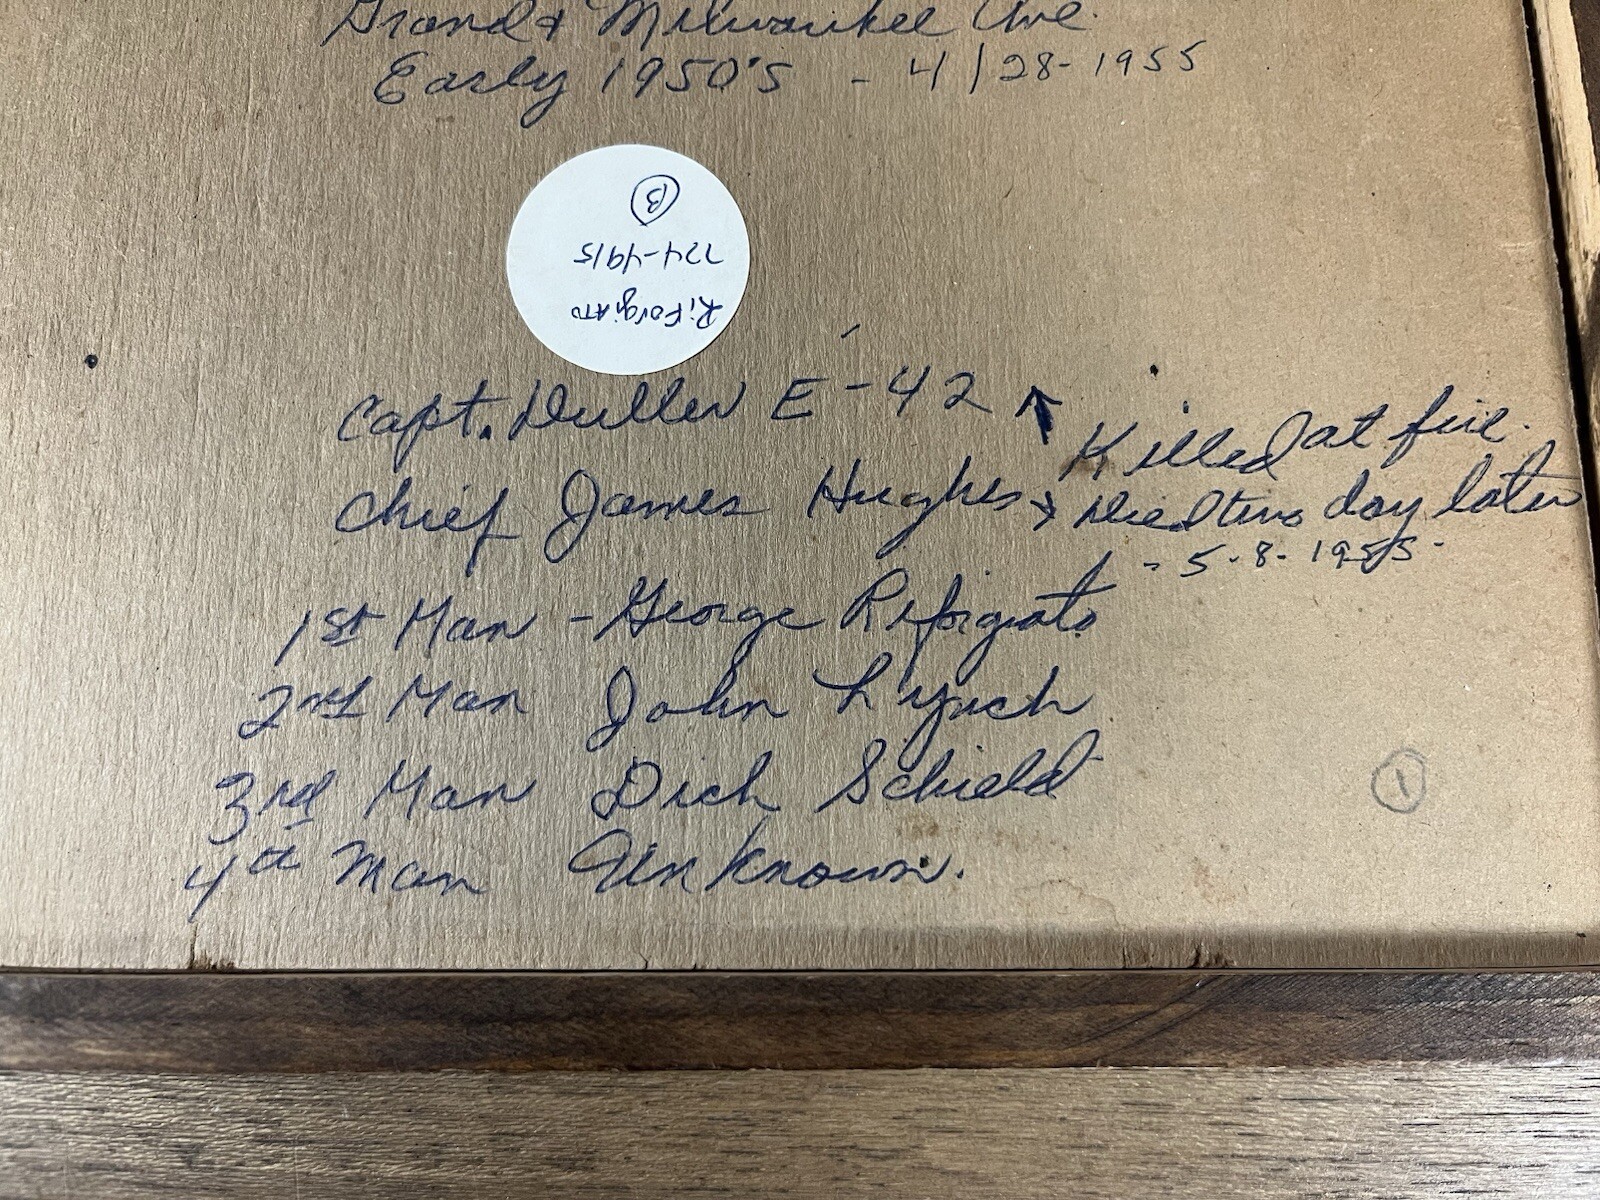 Grand & Milwaukee Ave.
Early 1950's - 4/28-1955
B
724-4915
RiforgiATO
Capt. E-42
Killed at fire.
Chief James Hughes → Died two day later
- 5-8-1955-
1st Man - George Riforgiato
2nd Man John Lynch
3rd Man Dick Schield
4th Man Unknown.
1